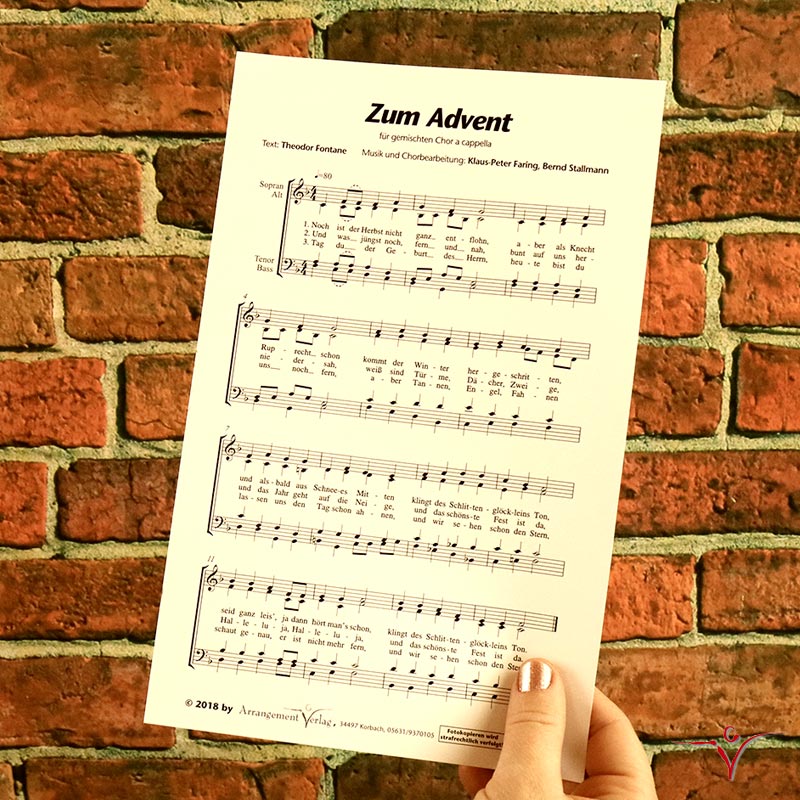 Zum Advent
für gemischten Chor a cappella
Text: Theodor Fontane Musik und Chorbearbeitung: Klaus-Peter Faring, Bernd Stallmann
♩=80
Sopran
Alt
1. Noch ist der Herbst nicht ganz ent - flohn, a - ber als Knecht
2. Und was jüngst noch, fern und nah, bunt auf uns her-
3. Tag du der Ge - burt des Herrn, heu - te bist du
Tenor
Bass
4
Rup - recht schon kommt der Win - ter her - ge - schrit - ten,
nie - der - sah, weiß sind Tür - me, Dä - cher, Zwei - ge,
uns noch fern, a - ber Tan - nen, En - gel, Fah - nen
7
und als - bald aus Schnee - es Mit - ten klingt des Schlit - ten - glöck - leins Ton,
und das Jahr geht auf die Nei - ge, und das schöns - te Fest ist da,
las - sen uns den Tag schon ah - nen, und wir se - hen schon den Stern,
11
seid ganz leis', ja dann hört man's schon, klingt des Schlit - ten - glöck - leins Ton.
Hal - le - lu - ja, Hal - le - lu - ja, und das schöns - te Fest ist da.
schaut ge - nau, er ist nicht mehr fern, und wir se - hen schon den Stern
© 2018 by Arrangement Verlag, 34497 Korbach, 05631/9370105
Fotokopieren wird
strafrechtlich verfolgt!